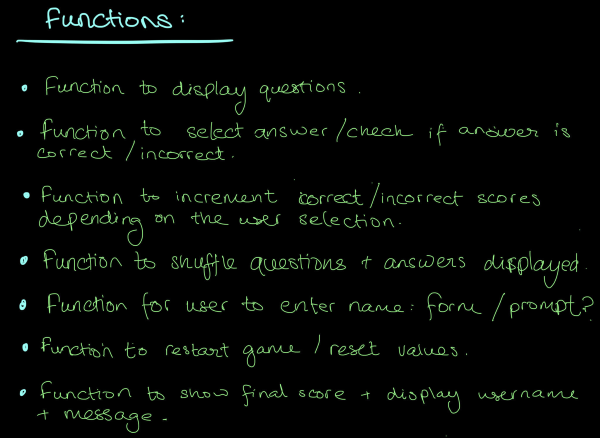 Functions:
• Function to display questions.
• Function to select answer/check if answer is
correct/incorrect.
• Function to increment correct/incorrect scores
depending on the user selection.
• Function to shuffle questions + answers displayed.
• Function for user to enter name: form/prompt?
• Function to restart game/reset values.
• Function to show final score + display username
+ message.